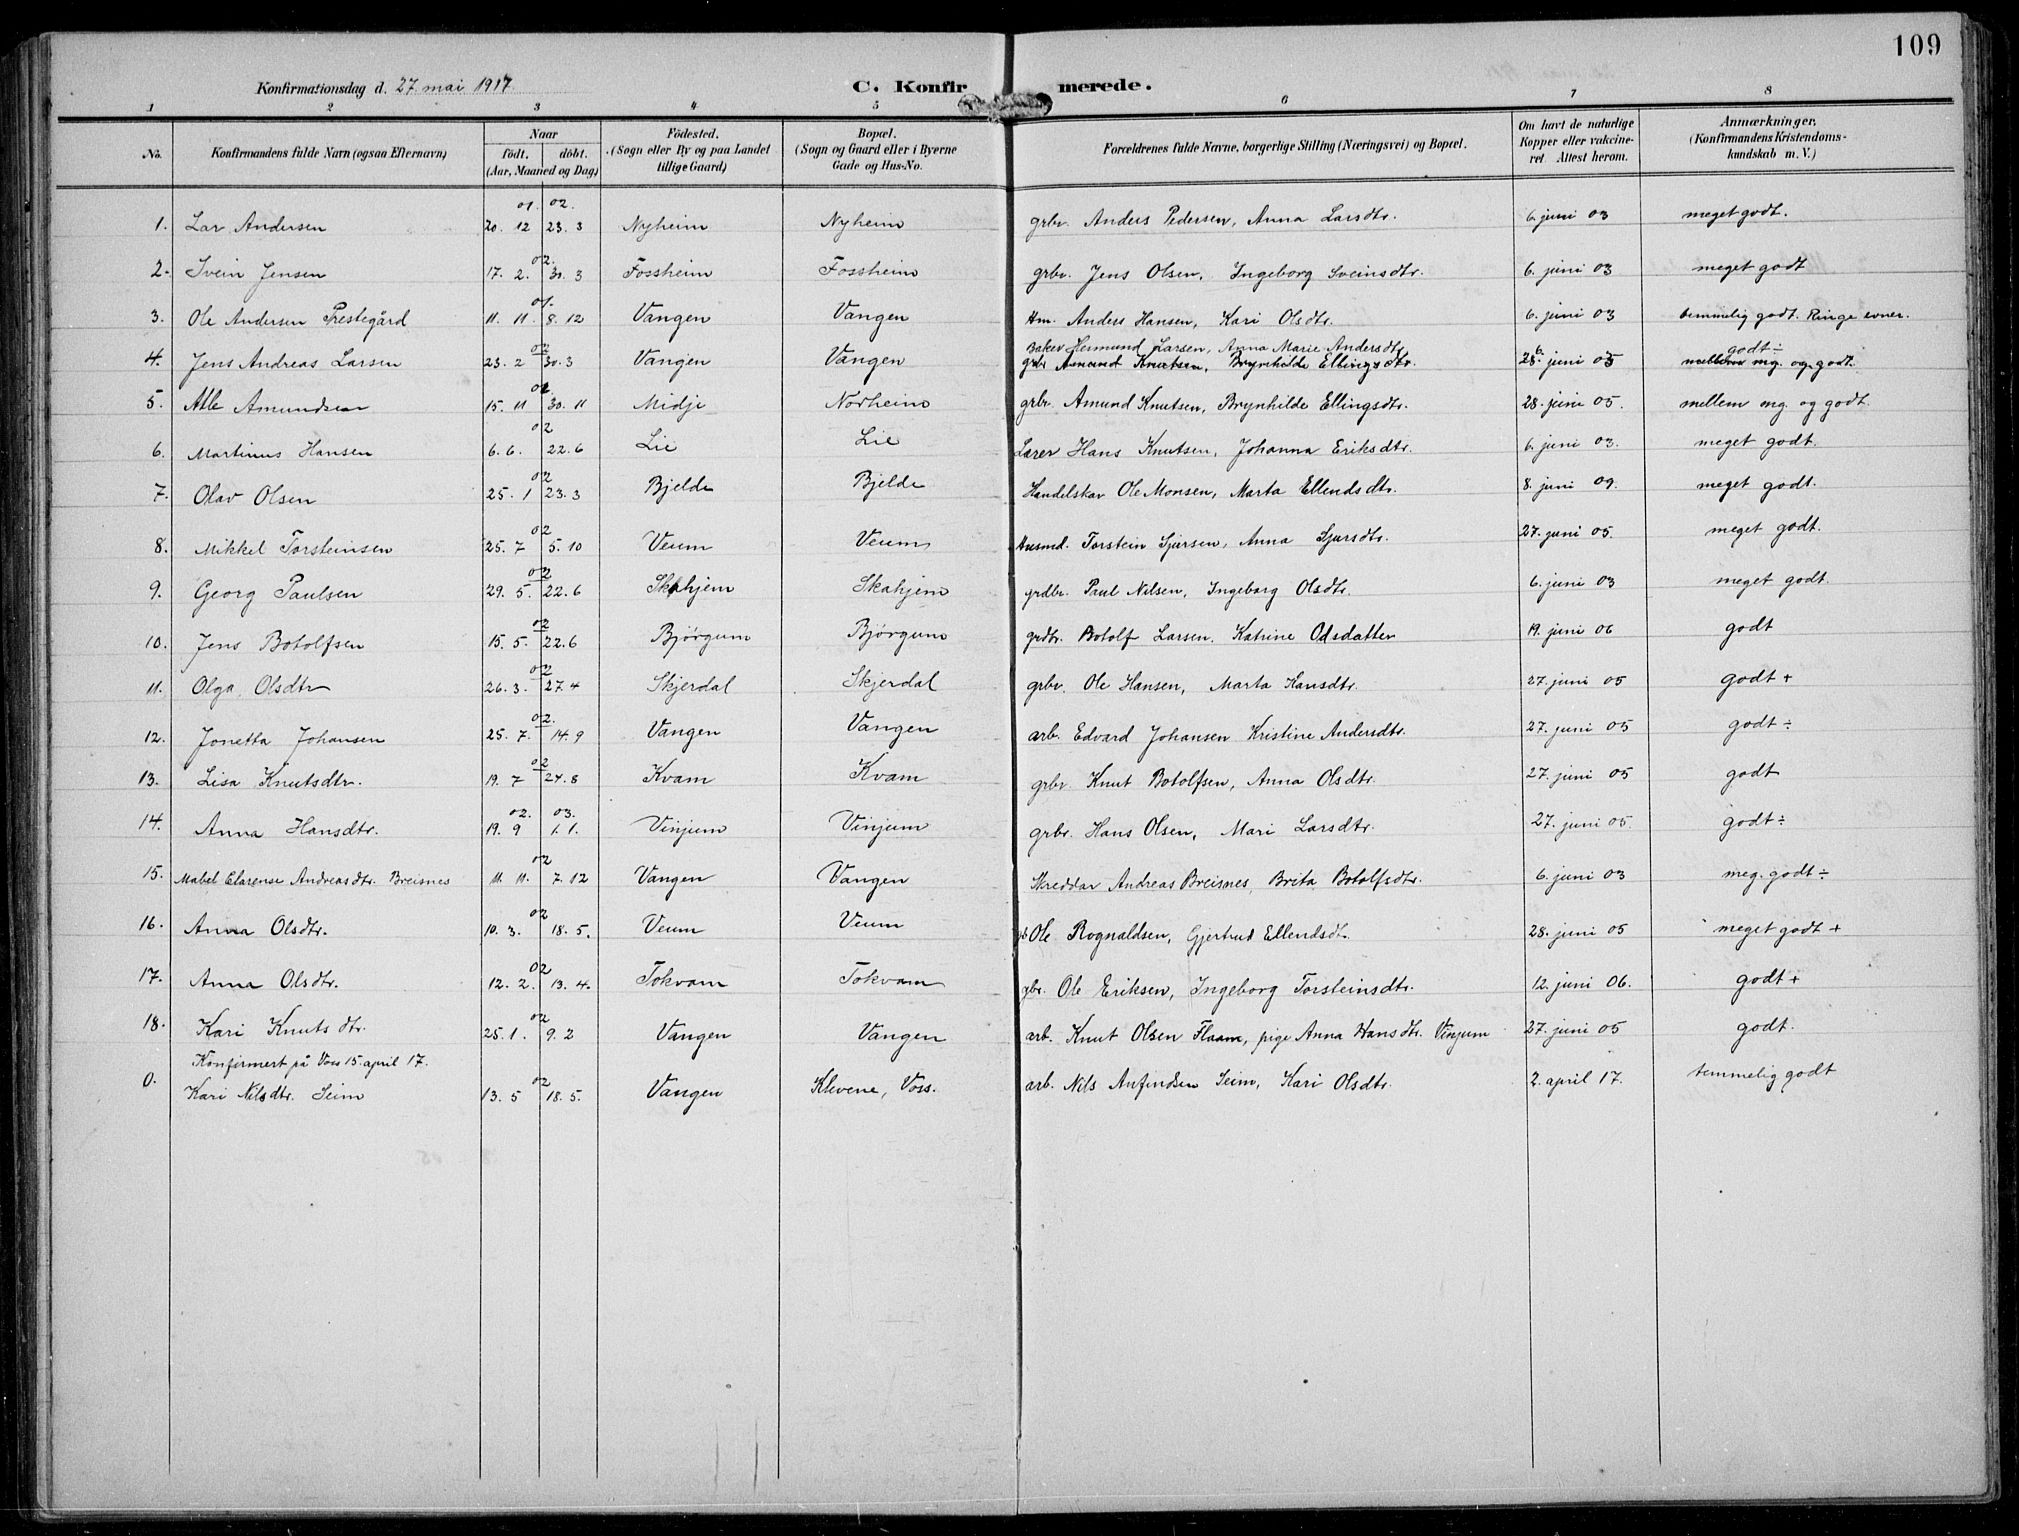 109
Konfirmationsdag d. 27 mai 1917 C. Konfirmerede.
1 2 3 4 5 6 7 8
No. Konfirmandens fulde Navn (ogsaa Efternavn) Naar födt. döbt. (Aar, Maaned og Dag) Födested. (Sogn eller By og paa Landet tillige Gaard) Bopæl. (Sogn og Gaard eller i Byerne Gade og Hus-No. Forældrenes fulde Navne, borgerlige Stilling (Næringsvei) og Bopæl. Om havt de naturlige Kopper eller vakcineret Attest herom. Anmærkninger. (Konfirmandens Kristendomskundskab m. V.)
01. 02.
1. Lar Andersen 20. 12 23. 3 Nyheim Nyheim grbr. Anders Pedersen, Anna Larsdtr. 6. juni 03 meget godt.
02.
2. Svein Jensen 17. 2. 30. 3 Fossheim Fossheim grbr. Jens Olsen, Ingeborg Sveinsdtr. 6. juni 03 meget godt
01.
3. Ole Andersen Prestegård 11. 11 8. 12 Vangen Vangen Hm. Anders Hansen, Kari Olsdtr. 6. juni 03 temmelig godt. Ringe evner.
02 Baker Hermund Larsen, Anna Marie Andersdtr. 6. godt ÷
4. Jens Andreas Larsen 23. 2 30. 3 Vangen Vangen grbr Amund Knutsen, Brynhilde Ellingsdtr. 28. juni 05 mellem mg. og godt.
01
5. Atle Amundsen 15. 11 30. 11 Midje Norheim grbr. Amund Knutsen, Brynhilde Ellingsdtr. 28. juni 05. mellem mg. og godt.
02
6. Martinus Hansen 6. 6. 22. 6 Lie Lie Lærer Hans Knutsen, Johanna Eriksdtr. 6. juni 03. meget godt.
02
7. Olav Olsen 25. 1 23. 3 Bjelde Bjelde Handelskar Ole Monsen, Marta Ellendsdtr. 8. juni 09. meget godt.
02
8. Mikkel Torsteinsen 25. 7 5. 10 Veum Veum Husmd. Torstein Sjursen, Anna Sjursdtr. 27. juni 05. meget godt.
02
9. Georg Paulsen 29. 5. 22. 6 Skahjem Skahjem grdbr. Paul Nilsen, Ingeborg Olsdtr. 6. juni 03 meget godt.
02
10. Jens Botolfsen 15. 5. 22. 6 Bjørgum Bjørgum grdtr. Botolf Larsen, Katrine Odsdatter 19. juni 06 godt
02
11. Olga Olsdtr 26. 3. 27. 4 Skjerdal Skjerdal grbr. Ole Hansen, Marta Hansdtr. 27. juni 05 godt +
02.
12. Jonetta Johansen 25. 7. 14. 9 Vangen Vangen arb. Edvard Johansen Kristine Andersdtr. 27. juni 05 godt ÷
02
13. Lisa Knutsdtr. 19. 7 24. 8 Kvam Kvam grbr Knut Botolfsen, Anna Olsdtr. 27. juni 05 godt
02. 03.
14. Anna Hansdtr. 19. 9 1. 1. Vinjum Vinjum grbr. Hans Olsen, Mari Larsdtr. 27. juni 05 godt ÷
02
15. Mabel Clarense Andreasdtr. Breisnes 11. 11. 7. 12 Vangen Vangen Skreddar Andreas Breisnes, Brita Botolfsdtr. 6. juni 03 meg. godt ÷
02
16. Anna Olsdtr. 10. 3. 18. 5. Veum Veum gb Ole Rognaldsen, Gjertrud Ellendsdt. 28. juni 05 meget godt +
02
17. Anna Olsdtr. 12. 2. 13. 4. Tokvam Tokvam gbr. Ole Eriksen, Ingeborg Torsteinsdtr. 12. juni 06. godt +
02
18. Kari Knutsdtr. 25. 1. 9. 2 Vangen Vangen arb. Knut Olsen Flaam, pige Anna Hansdtr. Vinjum 27. juni 05 godt.
Konfirmert på Voss 15. april 17.
02
0. Kari Nilsdtr. Seim 13. 5 18. 5. Vangen Klvene, Voss. arb. Nils Anfindsen Seim, Kari Olsdtr. 2. april 17. temmelig godt